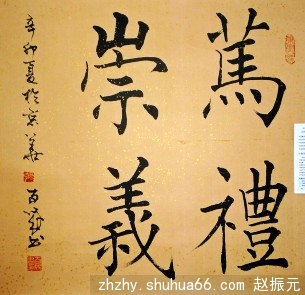 篤禮
崇義
辛卯夏於京華
zhzhy.shuhua66.com 赵振元